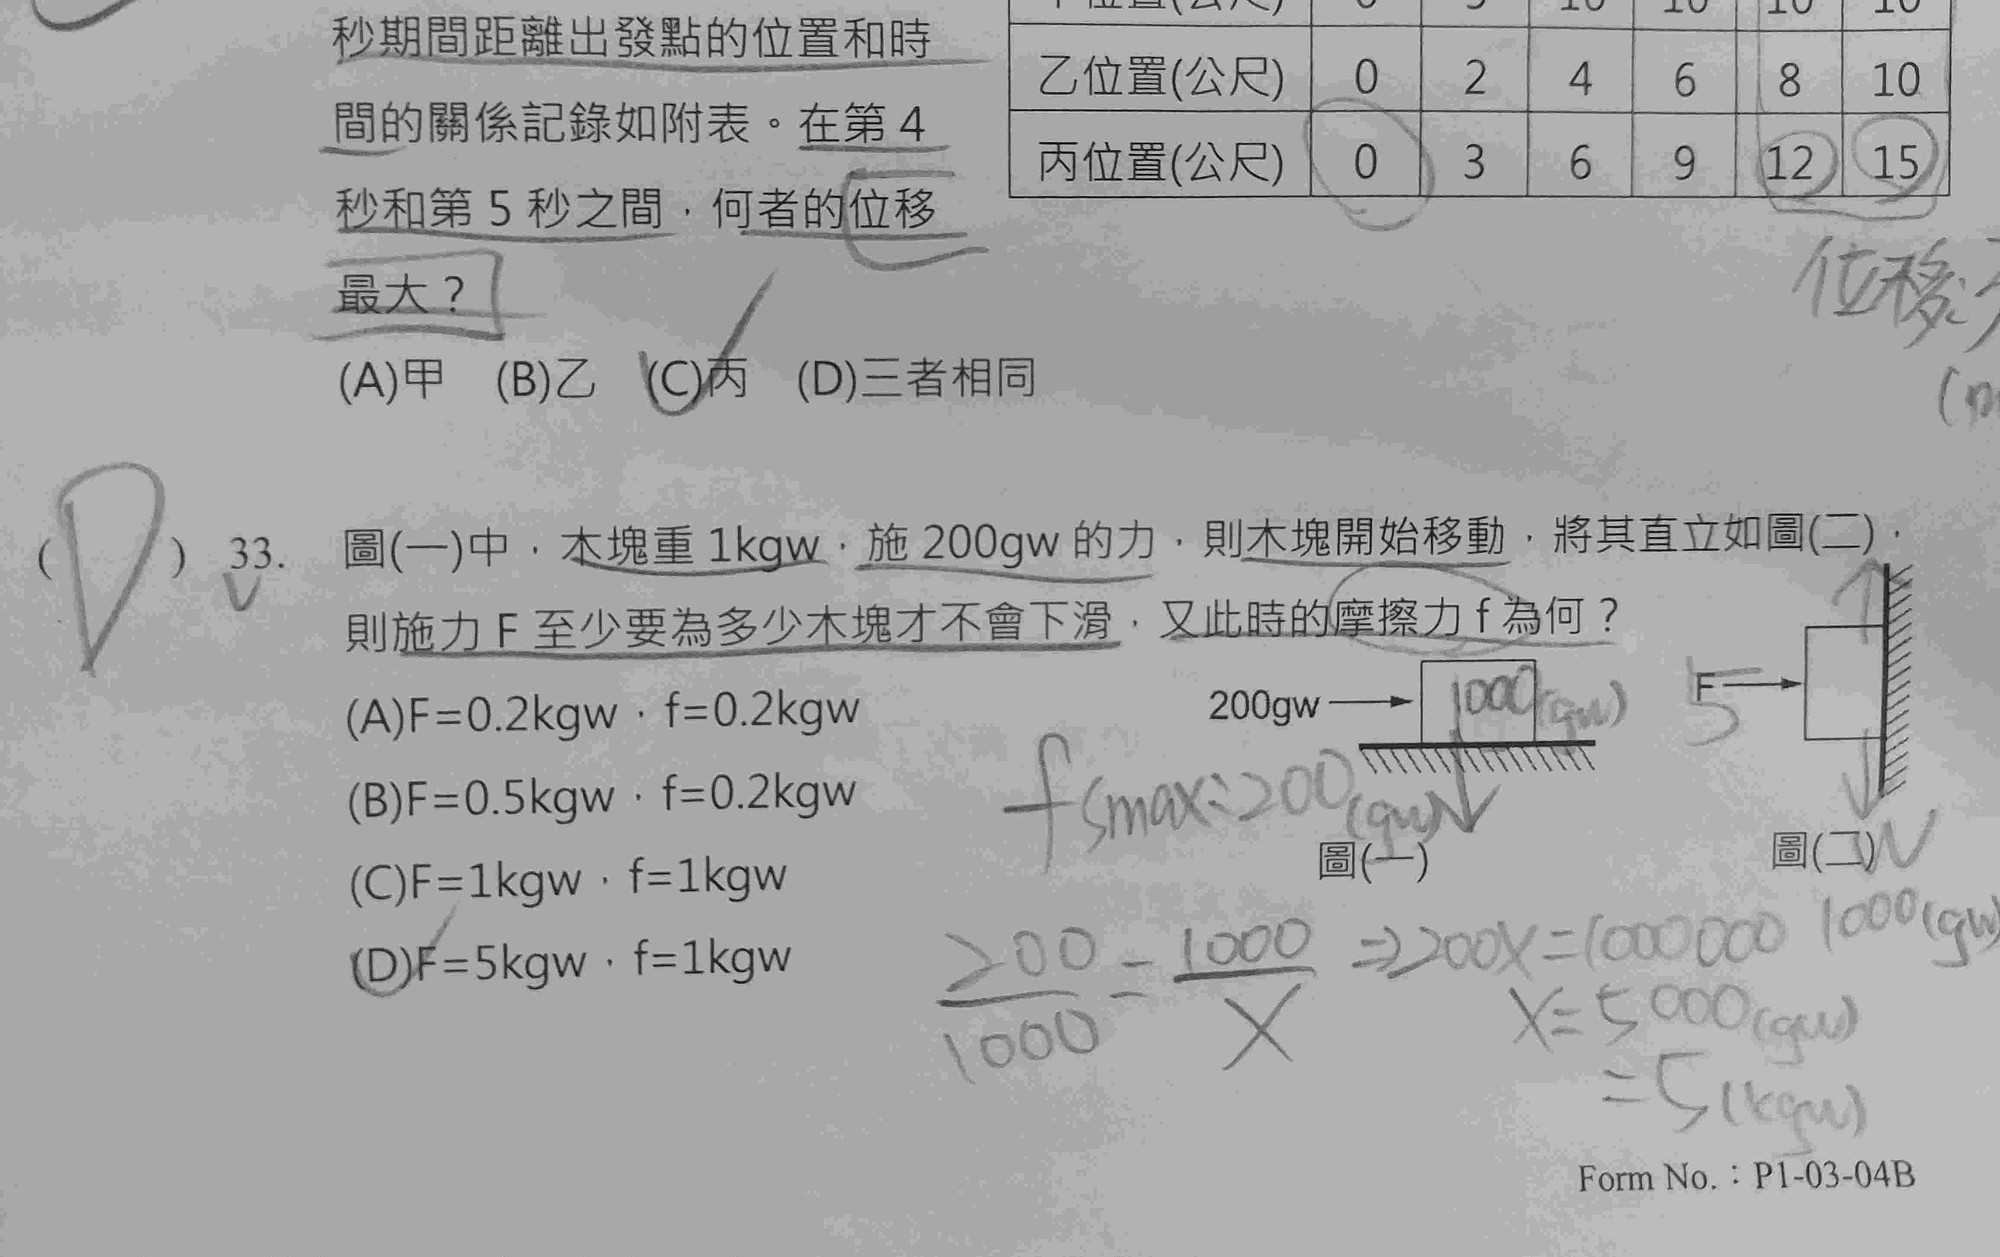 秒期間距離出發點的位置和時
間的關係記錄如附表。在第 4
秒和第 5 秒之間，何者的位移
最大？
位置(公尺) 0 5 10 10 10 10
乙位置(公尺) 0 2 4 6 8 10
丙位置(公尺) 0 3 6 9 12 15
位移:
(A)甲 (B)乙 (C)丙 (D)三者相同
(D) 33. 圖(一)中，木塊重 1kgw，施 200gw 的力，則木塊開始移動，將其直立如圖(二)，
則施力 F 至少要為多少木塊才不會下滑，又此時的摩擦力 f 為何？
(A)F=0.2kgw，f=0.2kgw
(B)F=0.5kgw，f=0.2kgw
(C)F=1kgw，f=1kgw
(D)F=5kgw，f=1kgw
200gw
1000(gw)
fsmax=200(gw)
圖(一)
5
F
圖(二)
N
1000(gw)
200/1000 = 1000/X ⇒ 200X=1000000
X=5000(gw)
=5(kgw)
Form No.：P1-03-04B